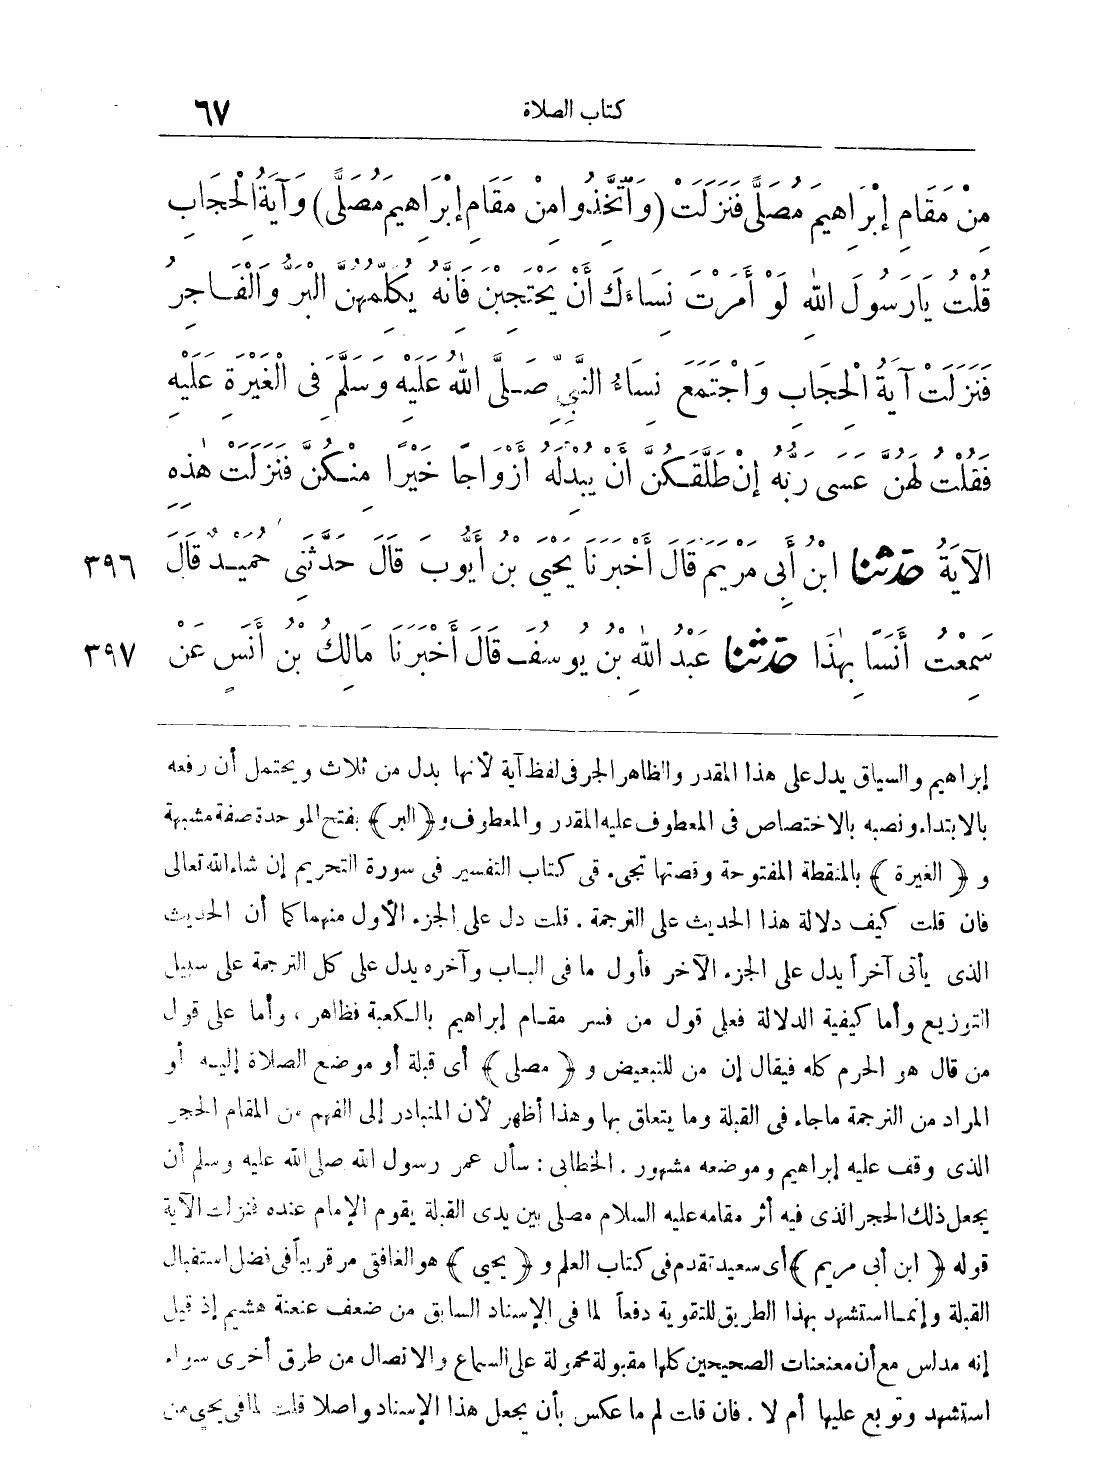 كتاب الصلاة ٦٧
مِنْ مَقَامِ إِبْرَاهِيمَ مُصَلًّى فَنَزَلَتْ (وَاتَّخِذُوا مِنْ مَقَامِ إِبْرَاهِيمَ مُصَلًّى) وَآيَةُ الْحِجَابِ
قُلْتُ يَارَسُولَ اللهِ لَوْ أَمَرْتَ نِسَاءَكَ أَنْ يَحْتَجِبْنَ فَإِنَّهُ يُكَلِّمُهُنَّ الْبَرُّ وَالْفَاجِرُ
فَنَزَلَتْ آيَةُ الْحِجَابِ وَاجْتَمَعَ نِسَاءُ النَّبِيِّ صَلَّى اللهُ عَلَيْهِ وَسَلَّمَ فِى الْغَيْرَةِ عَلَيْهِ
فَقُلْتُ لَهُنَّ عَسَى رَبُّهُ إِنْ طَلَّقَكُنَّ أَنْ يُبْدِلَهُ أَزْوَاجًا خَيْرًا مِنْكُنَّ فَنَزَلَتْ هٰذِهِ
الآيَةُ حَدَّثَنَا ابْنُ أَبِى مَرْيَمَ قَالَ أَخْبَرَنَا يَحْيَى بْنُ أَيُّوبَ قَالَ حَدَّثَنِى حُمَيْدٌ قَالَ ٣٩٦
سَمِعْتُ أَنَسًا بِهٰذَا حَدَّثَنَا عَبْدُ اللهِ بْنُ يُوسُفَ قَالَ أَخْبَرَنَا مَالِكُ بْنُ أَنَسٍ عَنْ ٣٩٧
إبراهيم والسياق يدل على هذا المقدر والظاهر الجر فى لفظ آية لأنها بدل من ثلاث ويحتمل أن رفعه
بالابتداء ونصبه بالاختصاص فى المعطوف عليه المقدر والمعطوف و ﴿البر﴾ بفتح الموحدة صفة مشبهة
و ﴿الغيرة﴾ بالمنقطة المفتوحة وقصتها تجىء فى كتاب التفسير فى سورة التحريم إن شاء الله تعالى
فان قلت كيف دلالة هذا الحديث على الترجمة . قلت دل على الجزء الأول منهما كما أن الحديث
الذى يأتى آخراً يدل على الجزء الآخر فأول ما فى الباب وآخره يدل على كل الترجمة على سبيل
التوزيع وأما كيفية الدلالة فعلى قول من فسر مقام إبراهيم بالكعبة فظاهر ، وأما على قول
من قال هو الحرم كله فيقال إن من للتبعيض و ﴿مصلى﴾ أى قبلة أو موضع الصلاة إليه أو
المراد من الترجمة ماجاء فى القبلة وما يتعلق بها وهذا أظهر لأن المتبادر إلى الفهم من المقام الحجر
الذى وقف عليه إبراهيم وموضعه مشهور . الخطابى : سأل عمر رسول الله صلى الله عليه وسلم أن
يجعل ذلك الحجر الذى فيه أثر مقامه عليه السلام مصلى بين يدى القبلة يقوم الإمام عنده فنزلت الآية
قوله ﴿ابن أبى مريم﴾ أى سعيد تقدم فى كتاب العلم و ﴿يحيى﴾ هو الغافقى مر قريباً فى فضل استقبال
القبلة وإنما استشهد بهذا الطريق للتقوية دفعاً لما فى الإسناد السابق من ضعف عنعنة هشيم إذ قيل
إنه مدلس مع أن معنعنات الصحيحين كلها مقبولة محمولة على السماع والاتصال من طرق أخرى سواء
استشهد وتوبع عليها أم لا . فان قلت لم ما عكس بأن يجعل هذا الإسناد واصلا قلت لما فى يحيى من